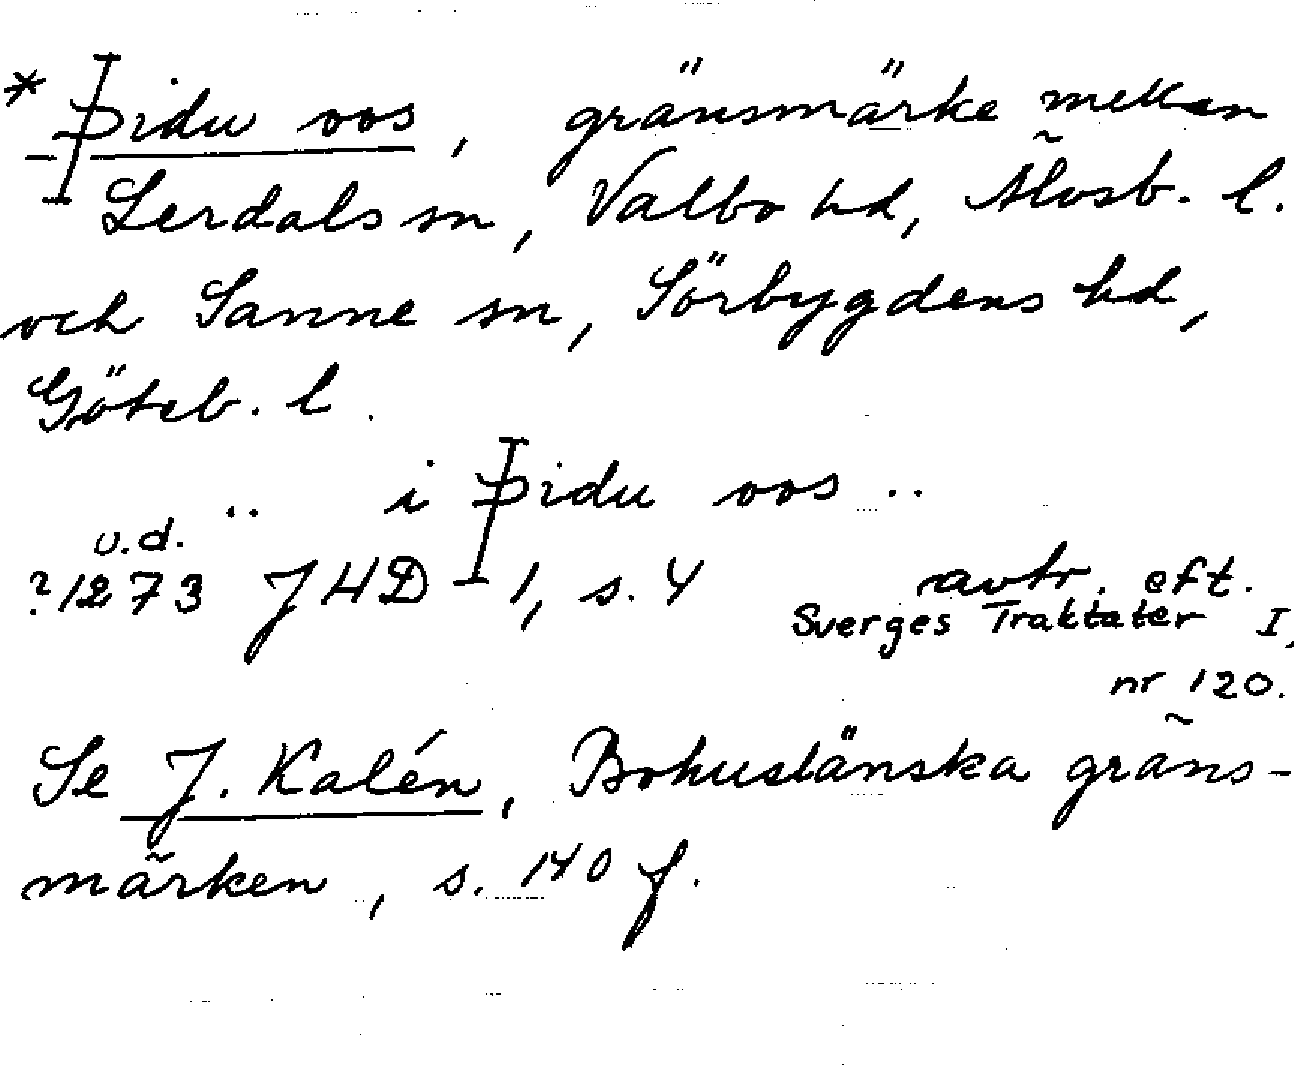 * Þidu oos, gränsmärke mellan
Lerdals sn, Valbo hd, Älvsb. l.
och Sanne sn, Sörbygdens hd,
Göteb. l.
.. i Þidu oos ..
u.d.
?1273 JHD 1, s. 4 avtr. eft.
Sverges Traktater I,
nr 120.
Se J. Kalén, Bohuslänska gräns-
märken, s. 140 f.